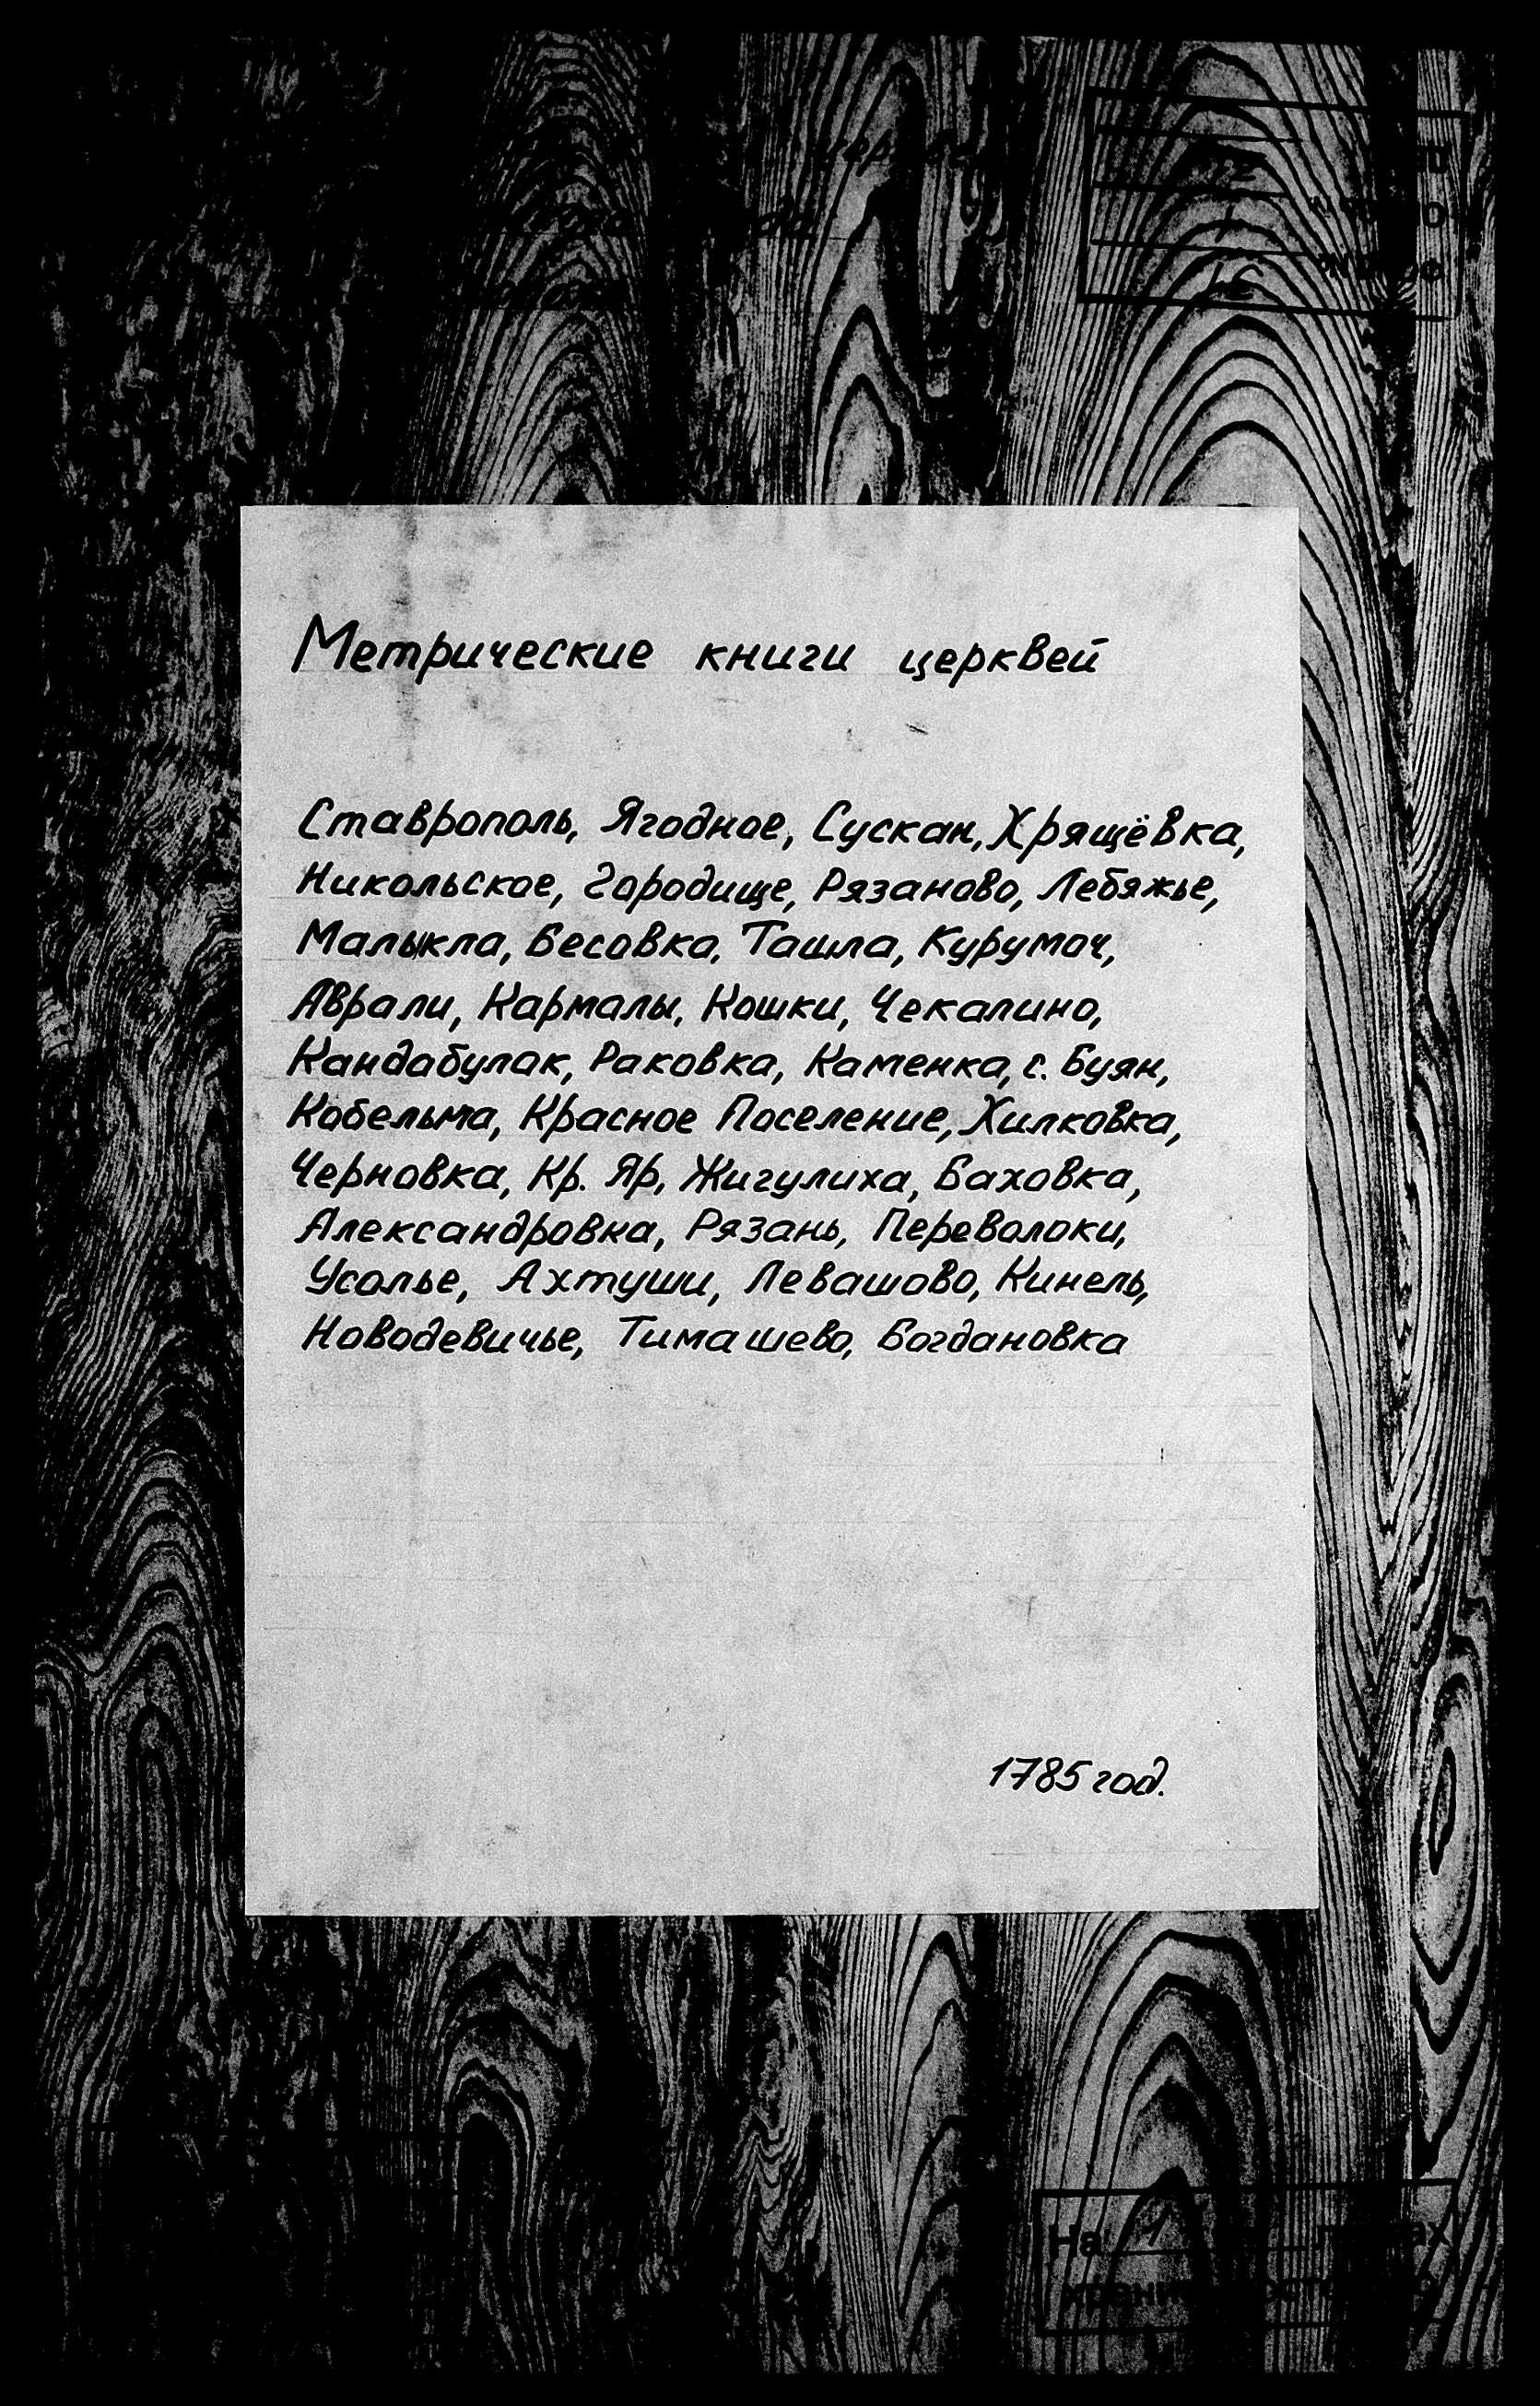 Метрические книги церквей
Ставрополь, Ягодное, Сускан, Хрящёвка,
Никольское, Городище, Рязаново, Лебяжье,
Малыкла, Бесовка, Ташла, Курумоч,
Аврали, Кармалы, Кошки, Чекалино,
Кандабулак, Раковка, Каменка, с. Буян,
Кобельма, Красное Поселение, Хилковка,
Черновка, Кр. Яр, Жигулиха, Баховка,
Александровка, Рязань, Переволоки,
Усолье, Ахтуши, Левашово, Кинель,
Новодевичье, Тимашево, Богдановка
1785 год.
На